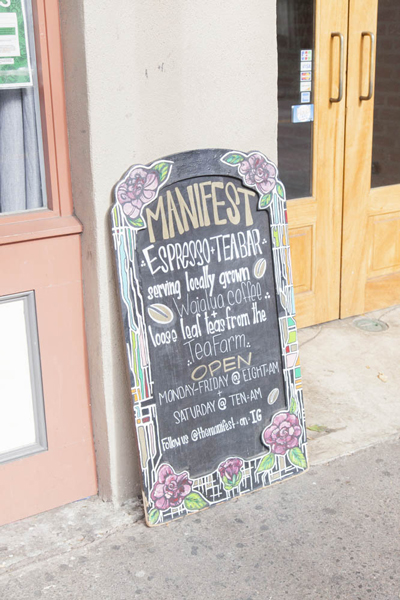 MANIFEST
ESPRESSO+TEABAR
serving locally grown
Waialua coffee
+
loose leaf teas from the
TeaFarm
OPEN
MONDAY-FRIDAY @ EIGHT-AM
+
SATURDAY @ TEN:AM
Follow us @thamanifest-on-IG